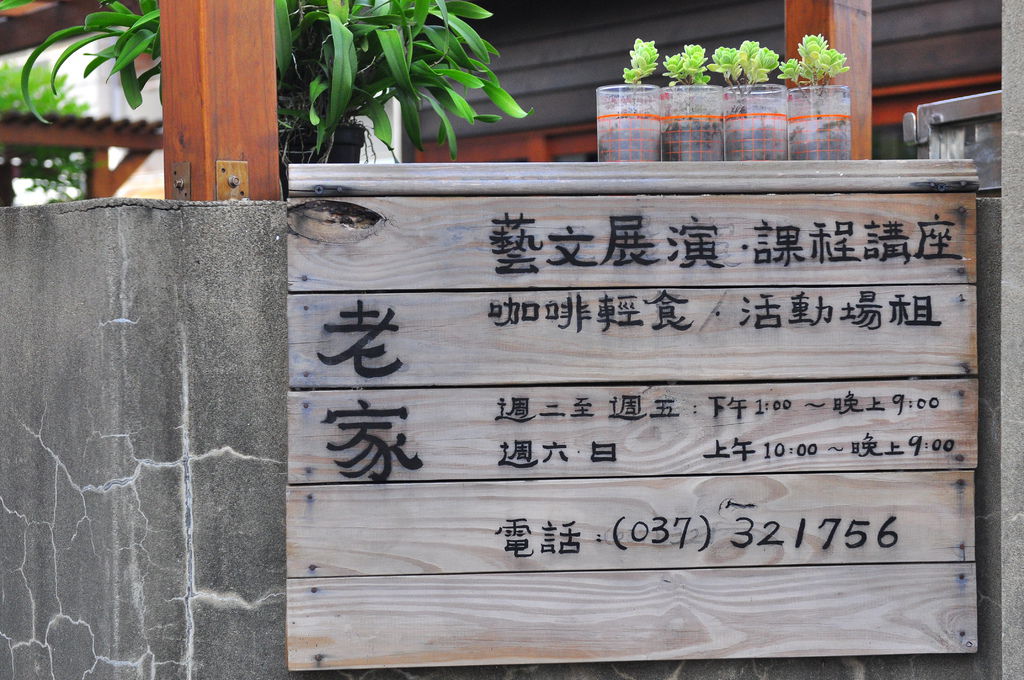 老家
藝文展演·課程講座
咖啡輕食/活動場租
週二至週五:下午1:00～晚上9:00
週六·日 上午10:00～晚上9:00
電話:(037)321756